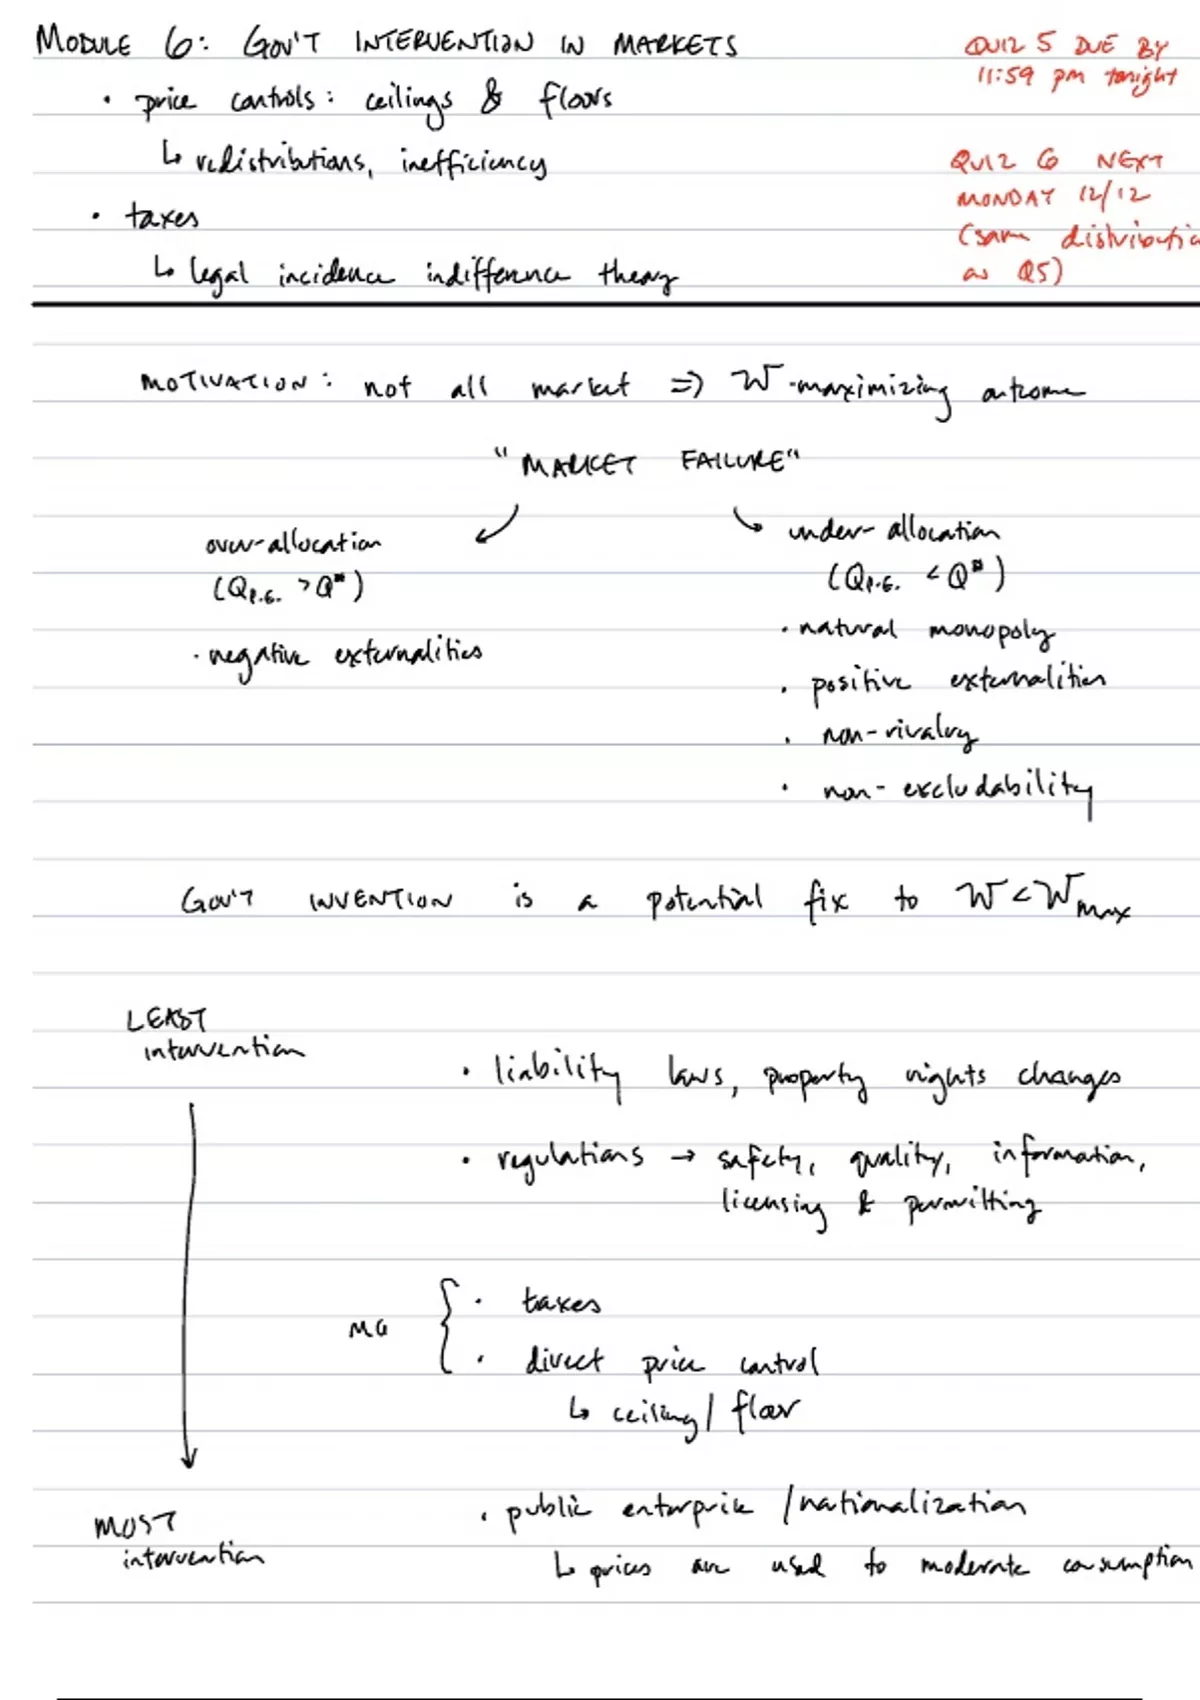 MODULE 6: GOV'T INTERVENTION IN MARKETS
QUIZ 5 DUE BY
11:59 pm tonight
• price controls: ceilings & floors
↳ redistributions, inefficiency
QUIZ 6 NEXT
MONDAY 12/12
(same distributio
as Q5)
• taxes
↳ legal incidence indifference theory
MOTIVATION: not all market => W-maximizing outcome
"MARKET FAILURE"
over-allocation
(QP.E. > Q*)
• negative externalities
under-allocation
(QP.E. < Q*)
• natural monopoly
• positive externalities
• non-rivalry
• non-excludability
GOV'T INVENTION is a potential fix to W < Wmax
LEAST
intervention
• liability laws, property rights changes
• regulations → safety, quality, information,
licensing & permitting
M6 { • taxes
• direct price control
↳ ceiling/floor
MOST
intervention
• public enterprise /nationalization
↳ prices are used to moderate consumption